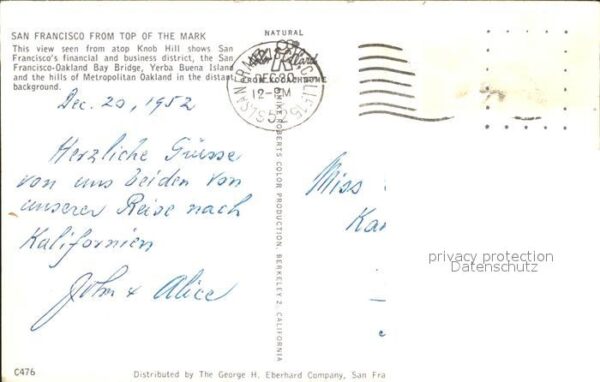 SAN FRANCISCO FROM TOP OF THE MARK
This view seen from atop Knob Hill shows San
Francisco's financial and business district, the San
Francisco-Oakland Bay Bridge, Yerba Buena Island
and the hills of Metropolitan Oakland in the distant
background.
Dec. 20, 1952
Herzliche Grüsse
von uns beiden von
unserer Reise nach
Kalifornien
John + Alice
C476
Distributed by The George H. Eberhard Company, San Fra
NATURAL
FROM KODACHROME
MIKE ROBERTS COLOR PRODUCTION, BERKELEY 2, CALIFORNIA
SAN FRANCISCO CALIF 15
DEC 20
12-PM
1952
Miss
Ka
privacy protection
Datenschutz